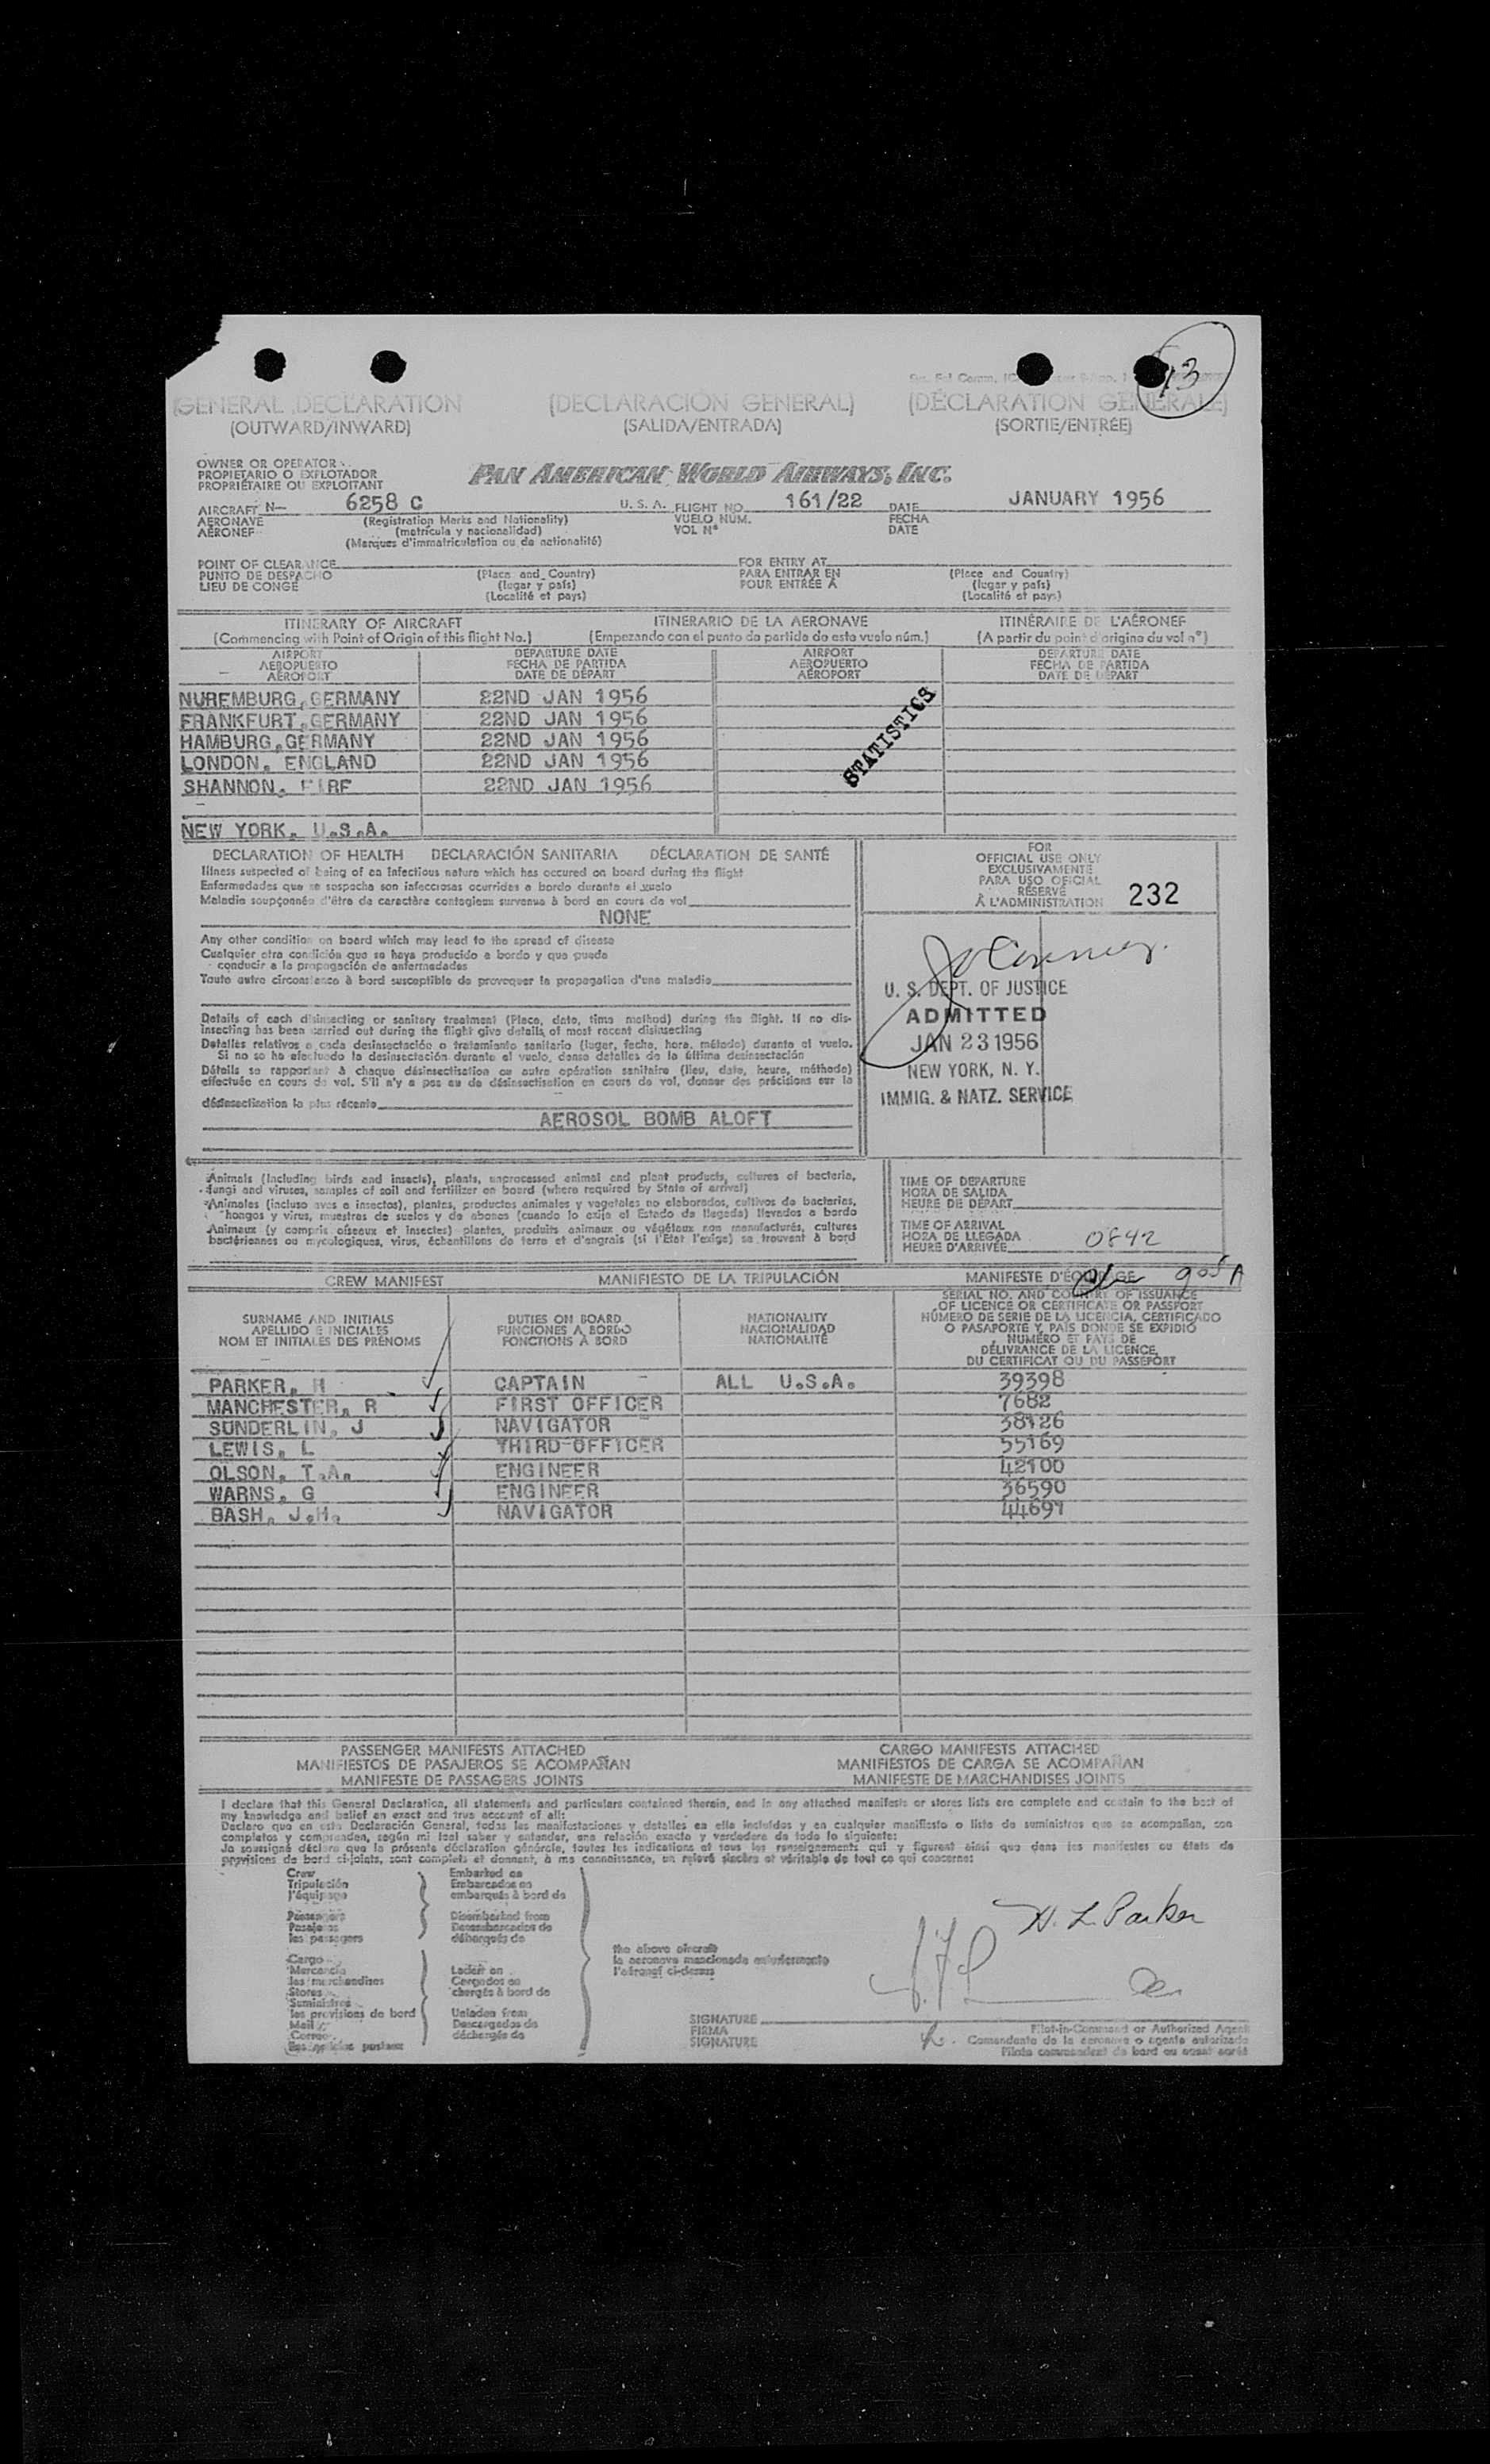 13
(GENERAL DECLARATION (DECLARACIÓN GENERAL) (DÉCLARATION GÉNÉRALE)
(OUTWARD/INWARD) (SALIDA/ENTRADA) (SORTIE/ENTRÉE)
OWNER OR OPERATOR
PROPIETARIO O EXPLOTADOR
PROPRIÉTAIRE OU EXPLOITANT
PAN AMERICAN WORLD AIRWAYS, INC.
AIRCRAFT N— 6258 C U. S. A. FLIGHT NO. 161/22 DATE JANUARY 1956
AERONAVE (Registration Marks and Nationality) VUELO NÚM. FECHA
AÉRONEF (matrícula y nacionalidad) VOL Nº DATE
(Marques d'immatriculation ou de nationalité)
POINT OF CLEARANCE FOR ENTRY AT
PUNTO DE DESPACHO (Place and Country) PARA ENTRAR EN (Place and Country)
LIEU DE CONGÉ (lugar y país) POUR ENTRÉE À (lugar y país)
(Localité et pays) (Localité et pays)
ITINERARY OF AIRCRAFT ITINERARIO DE LA AERONAVE ITINÉRAIRE DE L'AÉRONEF
(Commencing with Point of Origin of this flight No.) (Empezando con el punto de partida de este vuelo núm.) (A partir du point d'origine du vol nº)
AIRPORT DEPARTURE DATE AIRPORT DEPARTURE DATE
AEROPUERTO FECHA DE PARTIDA AEROPUERTO FECHA DE PARTIDA
AÉROPORT DATE DE DÉPART AÉROPORT DATE DE DÉPART
NUREMBURG, GERMANY 22ND JAN 1956
FRANKFURT, GERMANY 22ND JAN 1956
HAMBURG, GERMANY 22ND JAN 1956
LONDON, ENGLAND 22ND JAN 1956
SHANNON, EIRE 22ND JAN 1956
STATISTICS
NEW YORK, U.S.A.
DECLARATION OF HEALTH DECLARACIÓN SANITARIA DÉCLARATION DE SANTÉ
Illness suspected of being of an infectious nature which has occured on board during the flight
Enfermedades que se sospecha son infecciosas ocurridas a bordo durante el vuelo
Maladie soupçonnée d'être de caractère contagieux survenue à bord en cours de vol
NONE
FOR
OFFICIAL USE ONLY
EXCLUSIVAMENTE
PARA USO OFICIAL
RÉSERVÉ
À L'ADMINISTRATION 232
Any other condition on board which may lead to the spread of disease
Cualquier otra condición que se haya producido a bordo y que pueda
conducir a la propagación de enfermedades
Toute autre circonstance à bord susceptible de provoquer la propagation d'une maladie
U. S. DEPT. OF JUSTICE
ADMITTED
JAN 23 1956
NEW YORK, N. Y.
IMMIG. & NATZ. SERVICE
Details of each disinsecting or sanitary treatment (Place, date, time method) during the flight. If no dis-
insecting has been carried out during the flight give details of most recent disinsecting
Detalles relativos a cada desinsectación o tratamiento sanitario (lugar, fecha, hora, método) durante el vuelo.
Si no se ha efectuado la desinsectación durante el vuelo, dense detalles de la última desinsectación
Détails se rapportant à chaque désinsectisation ou autre opération sanitaire (lieu, date, heure, méthode)
effectuée en cours de vol. S'il n'y a pas eu de désinsectisation en cours de vol, donner des précisions sur la
désinsectisation la plus récente
AEROSOL BOMB ALOFT
Animals (Including birds and insects), plants, unprocessed animal and plant products, cultures of bacteria,
fungi and viruses, samples of soil and fertilizer on board (where required by State of arrival)
Animales (incluso aves e insectos), plantes, productos animales y vegetales no elaborados, cultivos de bacterias,
hongos y virus, muestras de suelos y de abonos (cuando lo exija el Estado de llegada) llevados a bordo
Animaux (y compris oiseaux et insectes) plantes, produits animaux ou végétaux non manufacturés, cultures
bactériennes ou mycologiques, virus, échantillons de terre et d'engrais (si l'Etat l'exige) se trouvant à bord
TIME OF DEPARTURE
HORA DE SALIDA
HEURE DE DÉPART
TIME OF ARRIVAL
HORA DE LLEGADA 0842
HEURE D'ARRIVÉE
CREW MANIFEST MANIFIESTO DE LA TRIPULACIÓN MANIFESTE D'ÉQUIPAGE 905 A
SURNAME AND INITIALS DUTIES ON BOARD NATIONALITY
APELLIDO E INICIALES FUNCIONES A BORDO NACIONALIDAD
NOM ET INITIALES DES PRÉNOMS FONCTIONS À BORD NATIONALITÉ
SERIAL NO. AND COUNTRY OF ISSUANCE
OF LICENCE OR CERTIFICATE OR PASSPORT
NÚMERO DE SERIE DE LA LICENCIA, CERTIFICADO
O PASAPORTE Y PAÍS DONDE SE EXPIDIÓ
NUMÉRO ET PAYS DE
DÉLIVRANCE DE LA LICENCE,
DU CERTIFICAT OU DU PASSEPORT
PARKER, H CAPTAIN ALL U.S.A. 39398
MANCHESTER, R FIRST OFFICER 7682
SUNDERLIN, J NAVIGATOR 38126
LEWIS, L THIRD OFFICER 55169
OLSON, T.A. ENGINEER 42100
WARNS, G ENGINEER 36590
BASH, J.H. NAVIGATOR 44697
PASSENGER MANIFESTS ATTACHED CARGO MANIFESTS ATTACHED
MANIFIESTOS DE PASAJEROS SE ACOMPAÑAN MANIFIESTOS DE CARGA SE ACOMPAÑAN
MANIFESTE DE PASSAGERS JOINTS MANIFESTE DE MARCHANDISES JOINTS
I declare that this General Declaration, all statements and particulars contained therein, and in any attached manifests or stores lists are complete and contain to the best of
my knowledge and belief an exact and true account of all:
Declaro que en esta Declaración General, todas las manifestaciones y detalles en ella incluidos y en cualquier manifiesto o lista de suministros que se acompañan, son
completos y comprenden, según mi leal saber y entender, una relación exacta y verdadera de todo lo siguiente:
Je soussigné déclare que la présente déclaration générale, toutes les indications et tous les renseignements qui y figurent ainsi que dans les manifestes ou états de
provisions de bord ci-joints, sont complets et donnent, à ma connaissance, un relevé sincère et véritable de tout ce qui concerne:
Crew Embarked on
Tripulación Embarcados en
l'équipage embarqués à bord de
Passengers Disembarked from
Pasajeros Desembarcados de
les passagers débarqués de
H. L. Parker
the above aircraft
la aeronave mencionada anteriormente
l'aéronef ci-dessus
Cargo
Mercancía Laden on
les marchandises Cargados en
Stores chargés à bord de
Suministros
les provisions de bord Unladen from
Mail Descargados de
Correo déchargés de
SIGNATURE
FIRMA Pilot-in-Command or Authorized Agent
SIGNATURE Comandante de la aeronave o agente autorizado
Pilote commandant de bord ou agent agréé